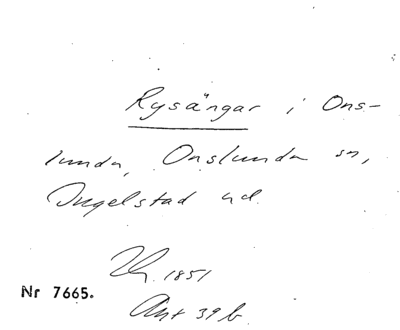 Rysängar i Ons-
lunda, Onslunda sn,
Ingelstad hd.
1851
Nr 7665.
Akt 39 b